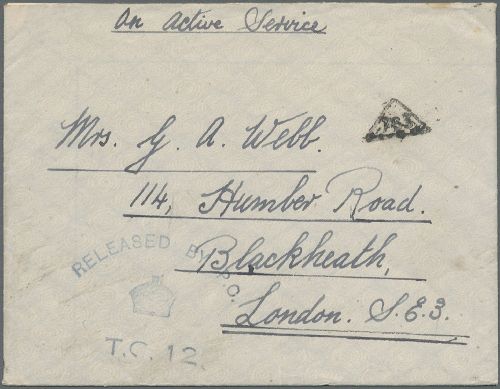 On Active Service
Mrs. G. A. Webb.
114, Humber Road.
Blackheath,
London. S.E.3.
RELEASED BY P.O.
T.C. 12.